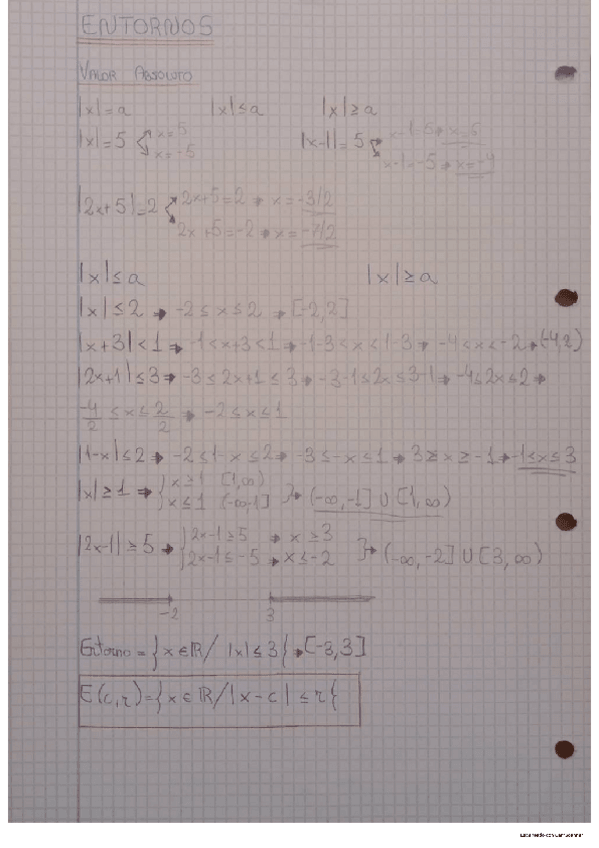 ENTORNOS
VALOR ABSOLUTO
|x|=a |x|≤a |x|≥a
|x|=5 x=5 |x-1|=5 x-1=5 → x=6
x=-5 x-1=-5 → x=-4
|2x+5|=2 2x+5=2 → x=-3/2
2x+5=-2 → x=-7/2
|x|≤a |x|≥a
|x|≤2 → -2≤x≤2 → [-2,2]
|x+3|<1 → -1<x+3<1 → -1-3<x<1-3 → -4<x<-2 → (-4,2)
|2x+1|≤3 → -3≤2x+1≤3 → -3-1≤2x≤3-1 → -4≤2x≤2 →
-4/2 ≤x≤ 2/2 → -2≤x≤1
|1-x|≤2 → -2≤1-x≤2 → -3≤-x≤1 → 3≥x≥-1 → -1≤x≤3
|x|≥1 → { x≥1 [1,∞)
x≤1 (-∞-1] } → (-∞,-1] ∪ [1,∞)
|2x-1|≥5 → { 2x-1≥5 → x≥3
2x-1≤-5 → x≤-2 } → (-∞,-2] ∪ [3,∞)
-2 3
Entorno = {x∈ℝ/ |x|≤3} → [-3,3]
E(c,r)={x∈ℝ/|x-c|≤r}